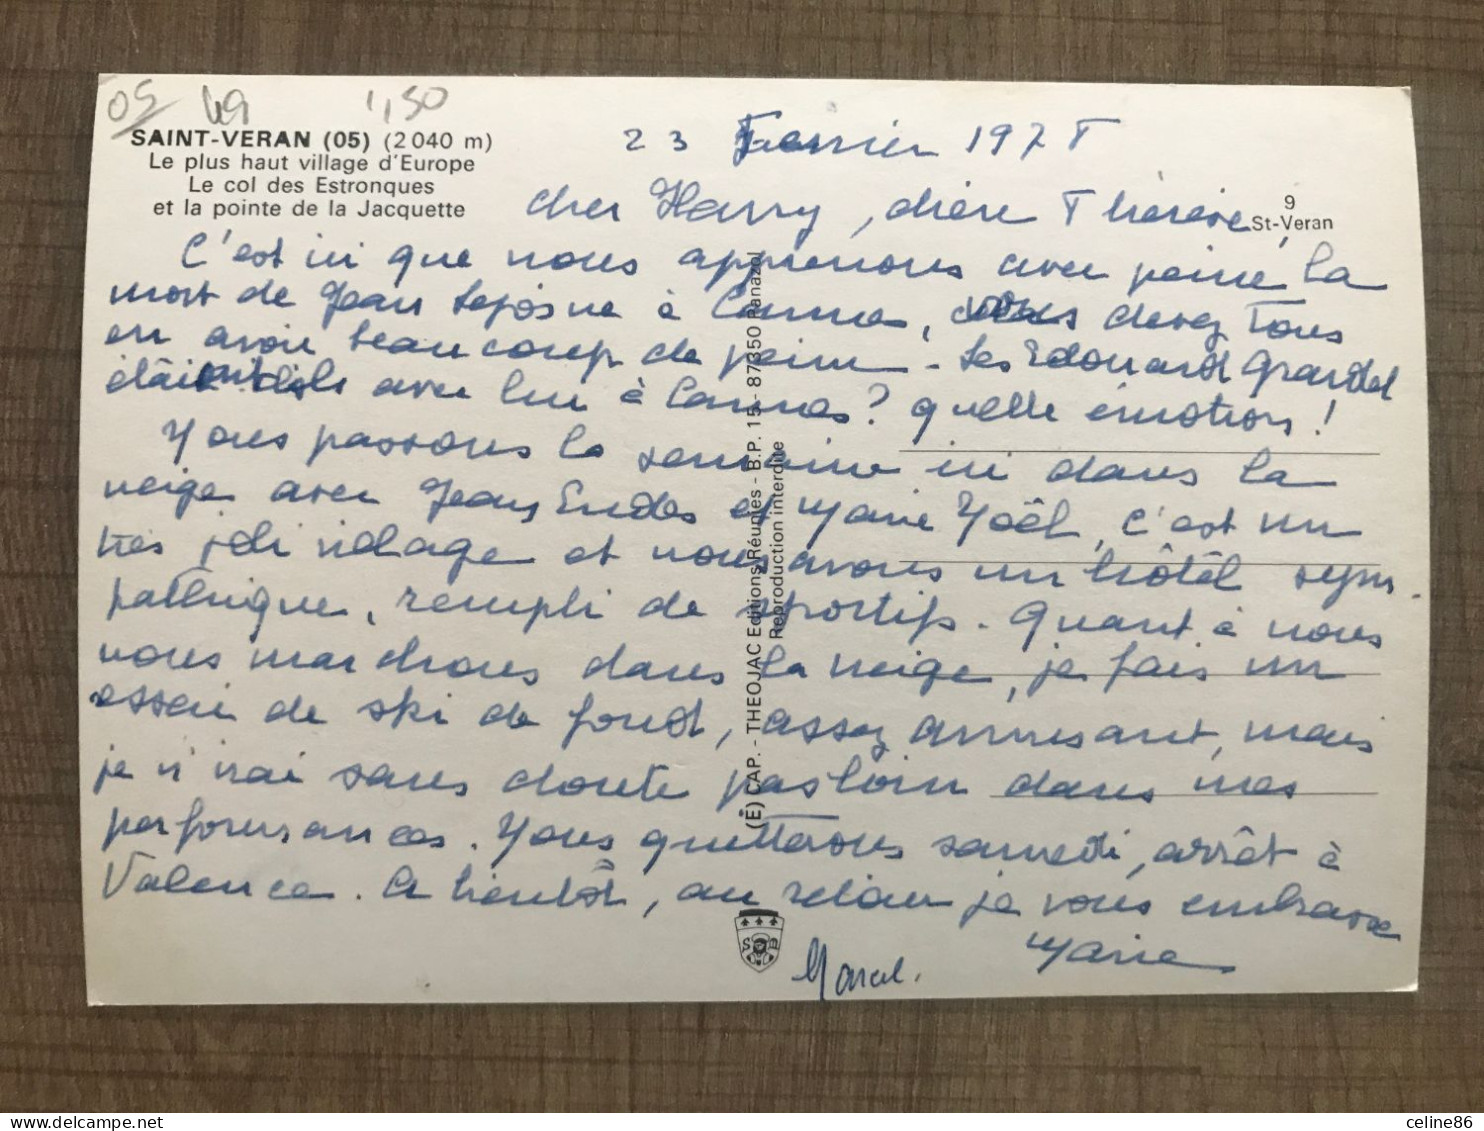 05 49 1,50
SAINT-VERAN (05) (2 040 m)
Le plus haut village d'Europe
Le col des Estronques
et la pointe de la Jacquette
9
St-Veran
23 Fevrier 197
Cher Harry, chère Thérèse,
C'est ici que nous apprenons avec peine la
mort de Jean à Cannes, vous devez Tous
en avoir beaucoup de peine. Les Edouard Grandel
étaient ils avec lui à Cannes? quelle émotion!
Nous passons la semaine ici dans la
neige avec Jean Eudes et Marie Noël, c'est un
très joli village et nous avons un hôtel sym
pathique, rempli de sportifs. Quant à nous
nous marchons dans la neige, je fais un
essai de ski de fond, assez amusant, mais
je n'irai sans doute pas loin dans mes
performances. Nous quitterons samedi, arrêt à
Valence. A bientôt, au retour je vous embrasse
Marie
Marcel.
(E) CAP. - THEOJAC Editions Réunies - B.P. 15 - 87350 Panazol
Reproduction interdite
S E
celine86